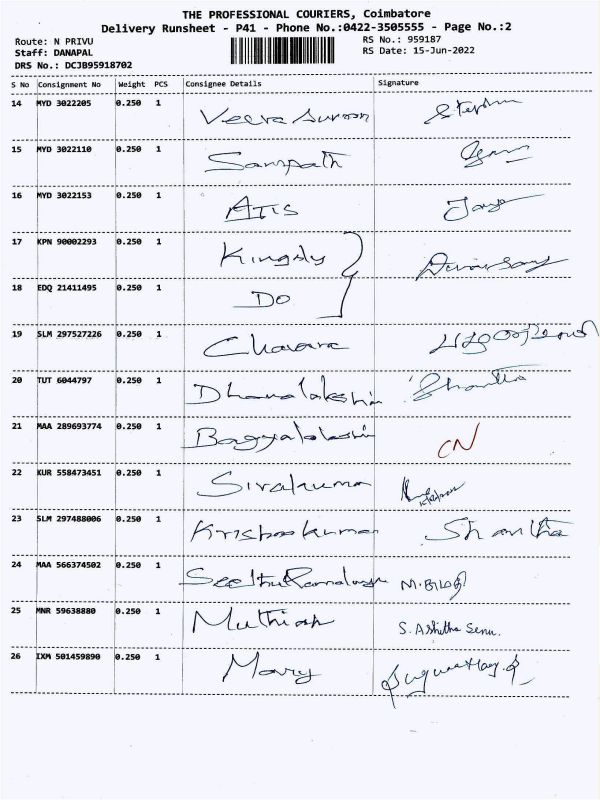 THE PROFESSIONAL COURIERS, Coimbatore
Delivery Runsheet - P41 - Phone No.:0422-3505555 - Page No.:2
Route: N PRIVU RS No.: 959187
Staff: DANAPAL RS Date: 15-Jun-2022
DRS No.: DCJB95918702
S No Consignment No Weight PCS Consignee Details Signature
14 MYD 3022205 0.250 1 Veera Stephen
15 MYD 3022110 0.250 1 Sampath
16 MYD 3022153 0.250 1 ATIS Jaya
17 KPN 90002293 0.250 1 Kingsly
18 EDQ 21411495 0.250 1 Do
19 SLM 297527226 0.250 1
20 TUT 6044797 0.250 1 Dhanalakshm Shantha
21 MAA 289693774 0.250 1 CN
22 KUR 558473451 0.250 1 Sivakumar
23 SLM 297488006 0.250 1 Krishnakumar Shantha
24 MAA 566374502 0.250 1
25 MNR 59638880 0.250 1 Muthiah S. Ashitha Senu.
26 IXM 501459890 0.250 1 Mary